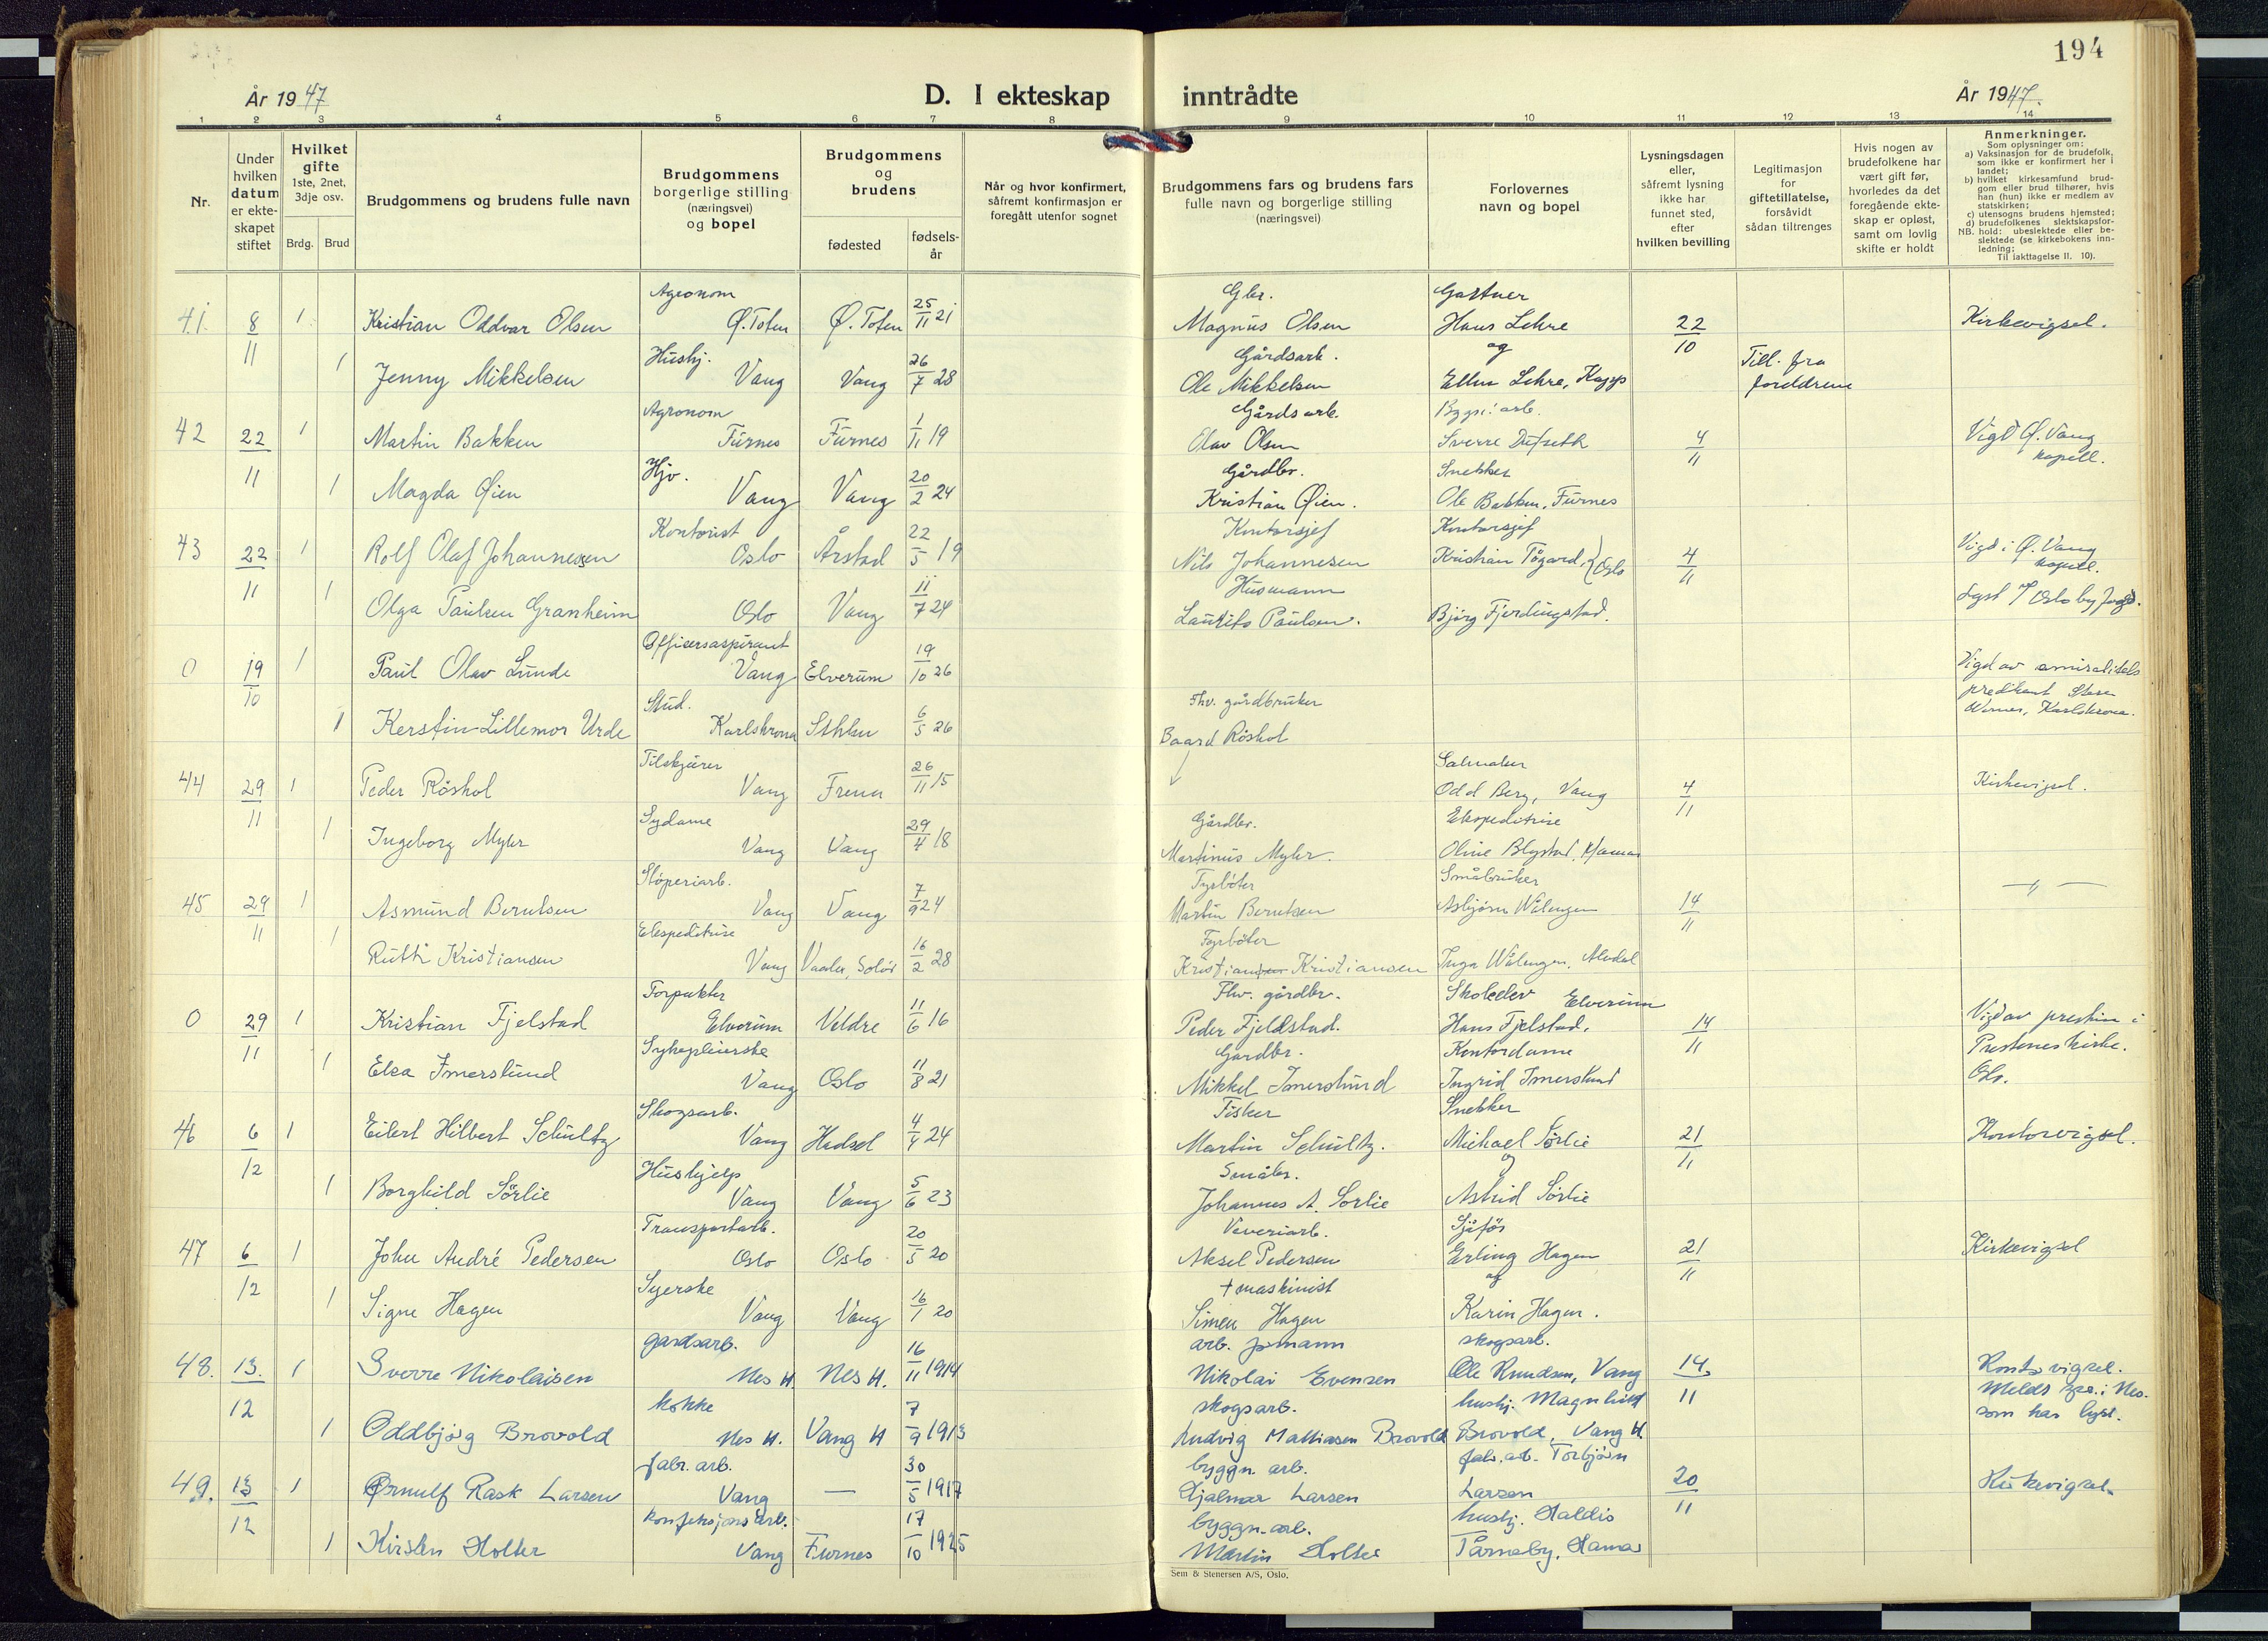 194
År 1947
D. I ekteskap inntrådte
År 1947.
1 2 3 4 5 6 7 8 9 10 11 12 13 14
Nr.
Under hvilken datum er ekte-skapet stiftet
Hvilket gifte 1ste, 2net, 3dje osv.
Brdg. Brud
Brudgommens og brudens fulle navn
Brudgommens borgerlige stilling (næringsvei) og bopel
Brudgommens og brudens
fødested
fødsels-år
Når og hvor konfirmert, såfremt konfirmasjon er foregått utenfor sognet
Brudgommens fars og brudens fars fulle navn og borgerlige stilling (næringsvei)
Forlovernes navn og bopel
Lysningsdagen eller, såfremt lysning ikke har funnet sted, efter hvilken bevilling
Legitimasjon for giftetillatelse, forsåvidt sådan tiltrenges
Hvis nogen av brudefolkene har vært gift før, hvorledes da det foregående ekte-skap er opløst, samt om lovlig skifte er holdt
Anmerkninger.
Som oplysninger om:
a) Vaksinasjon for de brudefolk, som ikke er konfirmert her i landet;
b) hvilket kirkesamfund brud-gom eller brud tilhører, hvis han (hun) ikke er medlem av statskirken;
c) utensogns brudens hjemsted;
d) brudefolkenes slektskapsfor-hold: ubeslektede eller be-slektede (se kirkebokens inn-ledning;
NB. Til iakttagelse II. 10).
Agronom Gbr. Gartner
41. 8/11 1 Kristian Oddvar Olsen Ø. Toten Ø. Toten 25/11 21 Magnus Olsen Hans Lehre 22/10 Kirkevigsel.
Hushj. Gårdsarb. og Till. fra
1 Jenny Mikkelsen Vang Vang 26/7 28 Ole Mikkelsen Ellen Lehre, Kapp foreldrene
Agronom Gårdsarb. Bygn. arb.
42 22/11 1 Martin Bakken Furnes Furnes 1/11 19 Olav Olsen Sverre Dufseth 4/11 Vigd Ø. Vang kapell.
Hjv. Gårdbr. Snekker
1 Magda Øien Vang Vang 20/2 24 Kristian Øien. Ole Bakken, Furnes
Kontorist Kontorsjef Kontorsjef
43 22/11 1 Rolf Olaf Johannessen Oslo Årstad 22/5 19 Nils Johannesen Kristian Tøgard, Oslo 4/11 Vigd i Ø. Vang kapell.
Husmann
1 Olga Paulsen Granheim Oslo Vang 11/7 24 Laurits Paulsen. Bjørg Fjerdingstad. Lyst Oslo
Officersaspirant
0 19/10 1 Paul Olav Lunde Vang Elverum 19/10 26 Vigd av amiralitets
Stud. Fhv. gårdbruker predikant
1 Kerstin Lillemor Urde Karlskrona Sthlm 6/5 26 Werner, Karlskrona.
Baard Röshol
Tilskjærer Salmaker
44 29/11 1 Peder Röshol Vang 26/11 15 Odd Berg, Vang 4/11 Kirkevigsel.
Sydame Gårdbr. Ekspeditrise
1 Ingeborg Myhr Vang Vang 29/4 18 Martinus Myhr. Oline Blystad, Hamar
Støperiarb. Fyrböter Småbruker
45 29/11 1 Asmund Berntsen Vang Vang 7/9 24 Martin Berntsen Asbjørn Wålengen 14/11 — " —
Ekspeditrise Fyrböter
1 Ruth Kristiansen Vang Vaaler, Solör 16/2 28 Kristian Kristiansen Inga Wålengen,
Forpakter Fhv. gårdbr. Skoleelev Elverum
0 29/11 1 Kristian Fjelstad Elverum Veldre 11/6 16 Peder Fjeldstad. Hans Fjelstad. 14/11 Vigd av presten i
Sykepleierske Gardbr. Kontordame Prestenes kirke.
1 Elsa Imerslund Vang Oslo 11/8 21 Mikkel Imerslund Ingrid Imerslund Oslo.
Skogsarb. Fisker Snekker
46 6/12 1 Eilert Hilbert Schultz Vang Hadsel 4/4 24 Martin Schultz. Michael Sørlie 21/11 Kontorvigsel.
Hushjelp Småbr. og
1 Borghild Sørlie Vang Vang 5/6 23 Johannes A. Sorlie Astrid Sörlie
Transportarb. Veveriarb. Sjåför
47 6/12 1 John André Pedersen Oslo Oslo 20/5 20 Aksel Pedersen Erling Hagen 21/11 Kirkevigsel
Syerske + maskinist og
1 Signe Hagen Vang Vang 16/1 20 Simen Hagen Karin Hagen.
gardsarb. arb. formann skogsarb.
48. 13./12 1 Sverre Nikolaisen Nes H. Nes H. 16/11 1914 Nikolai Evensen Ole Knudsen, Vang 14./11 Kontorvigsel.
kokke skogsarb. hushj. Magnhild Meldt spr. i Nes. som har lyst.
1 Oddbjørg Brovold Nes H. Vang H 7/9 1913 Ludvig Mathiasen Brovold Brovold, Vang H.
fabr. arb. byggn. arb. fabr. arb. Torbjørn
49. 13/12 1 Ørnulf Rask Larsen Vang — 30/5 1917 Hjalmar Larsen Larsen 20/11 Kirkevigsel.
konfeksjonsarb. byggn. arb. hushj. Haldis
1 Kirsten Holter Vang Furnes 17/10 1925 Martin Holter Tårneby, Hamar
Sem & Stenersen A/S, Oslo.